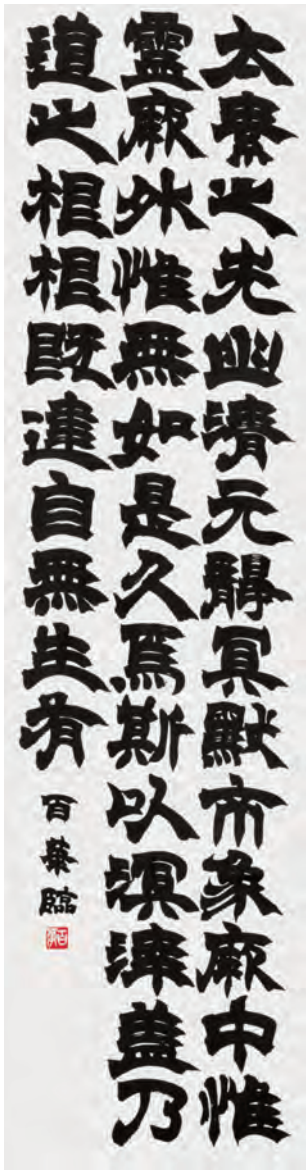 太素之先幽清元靜冥默不象厥中惟
靈厥外惟無如是久焉斯以溟涬蓋乃
道之根根既建自無生有
百華臨